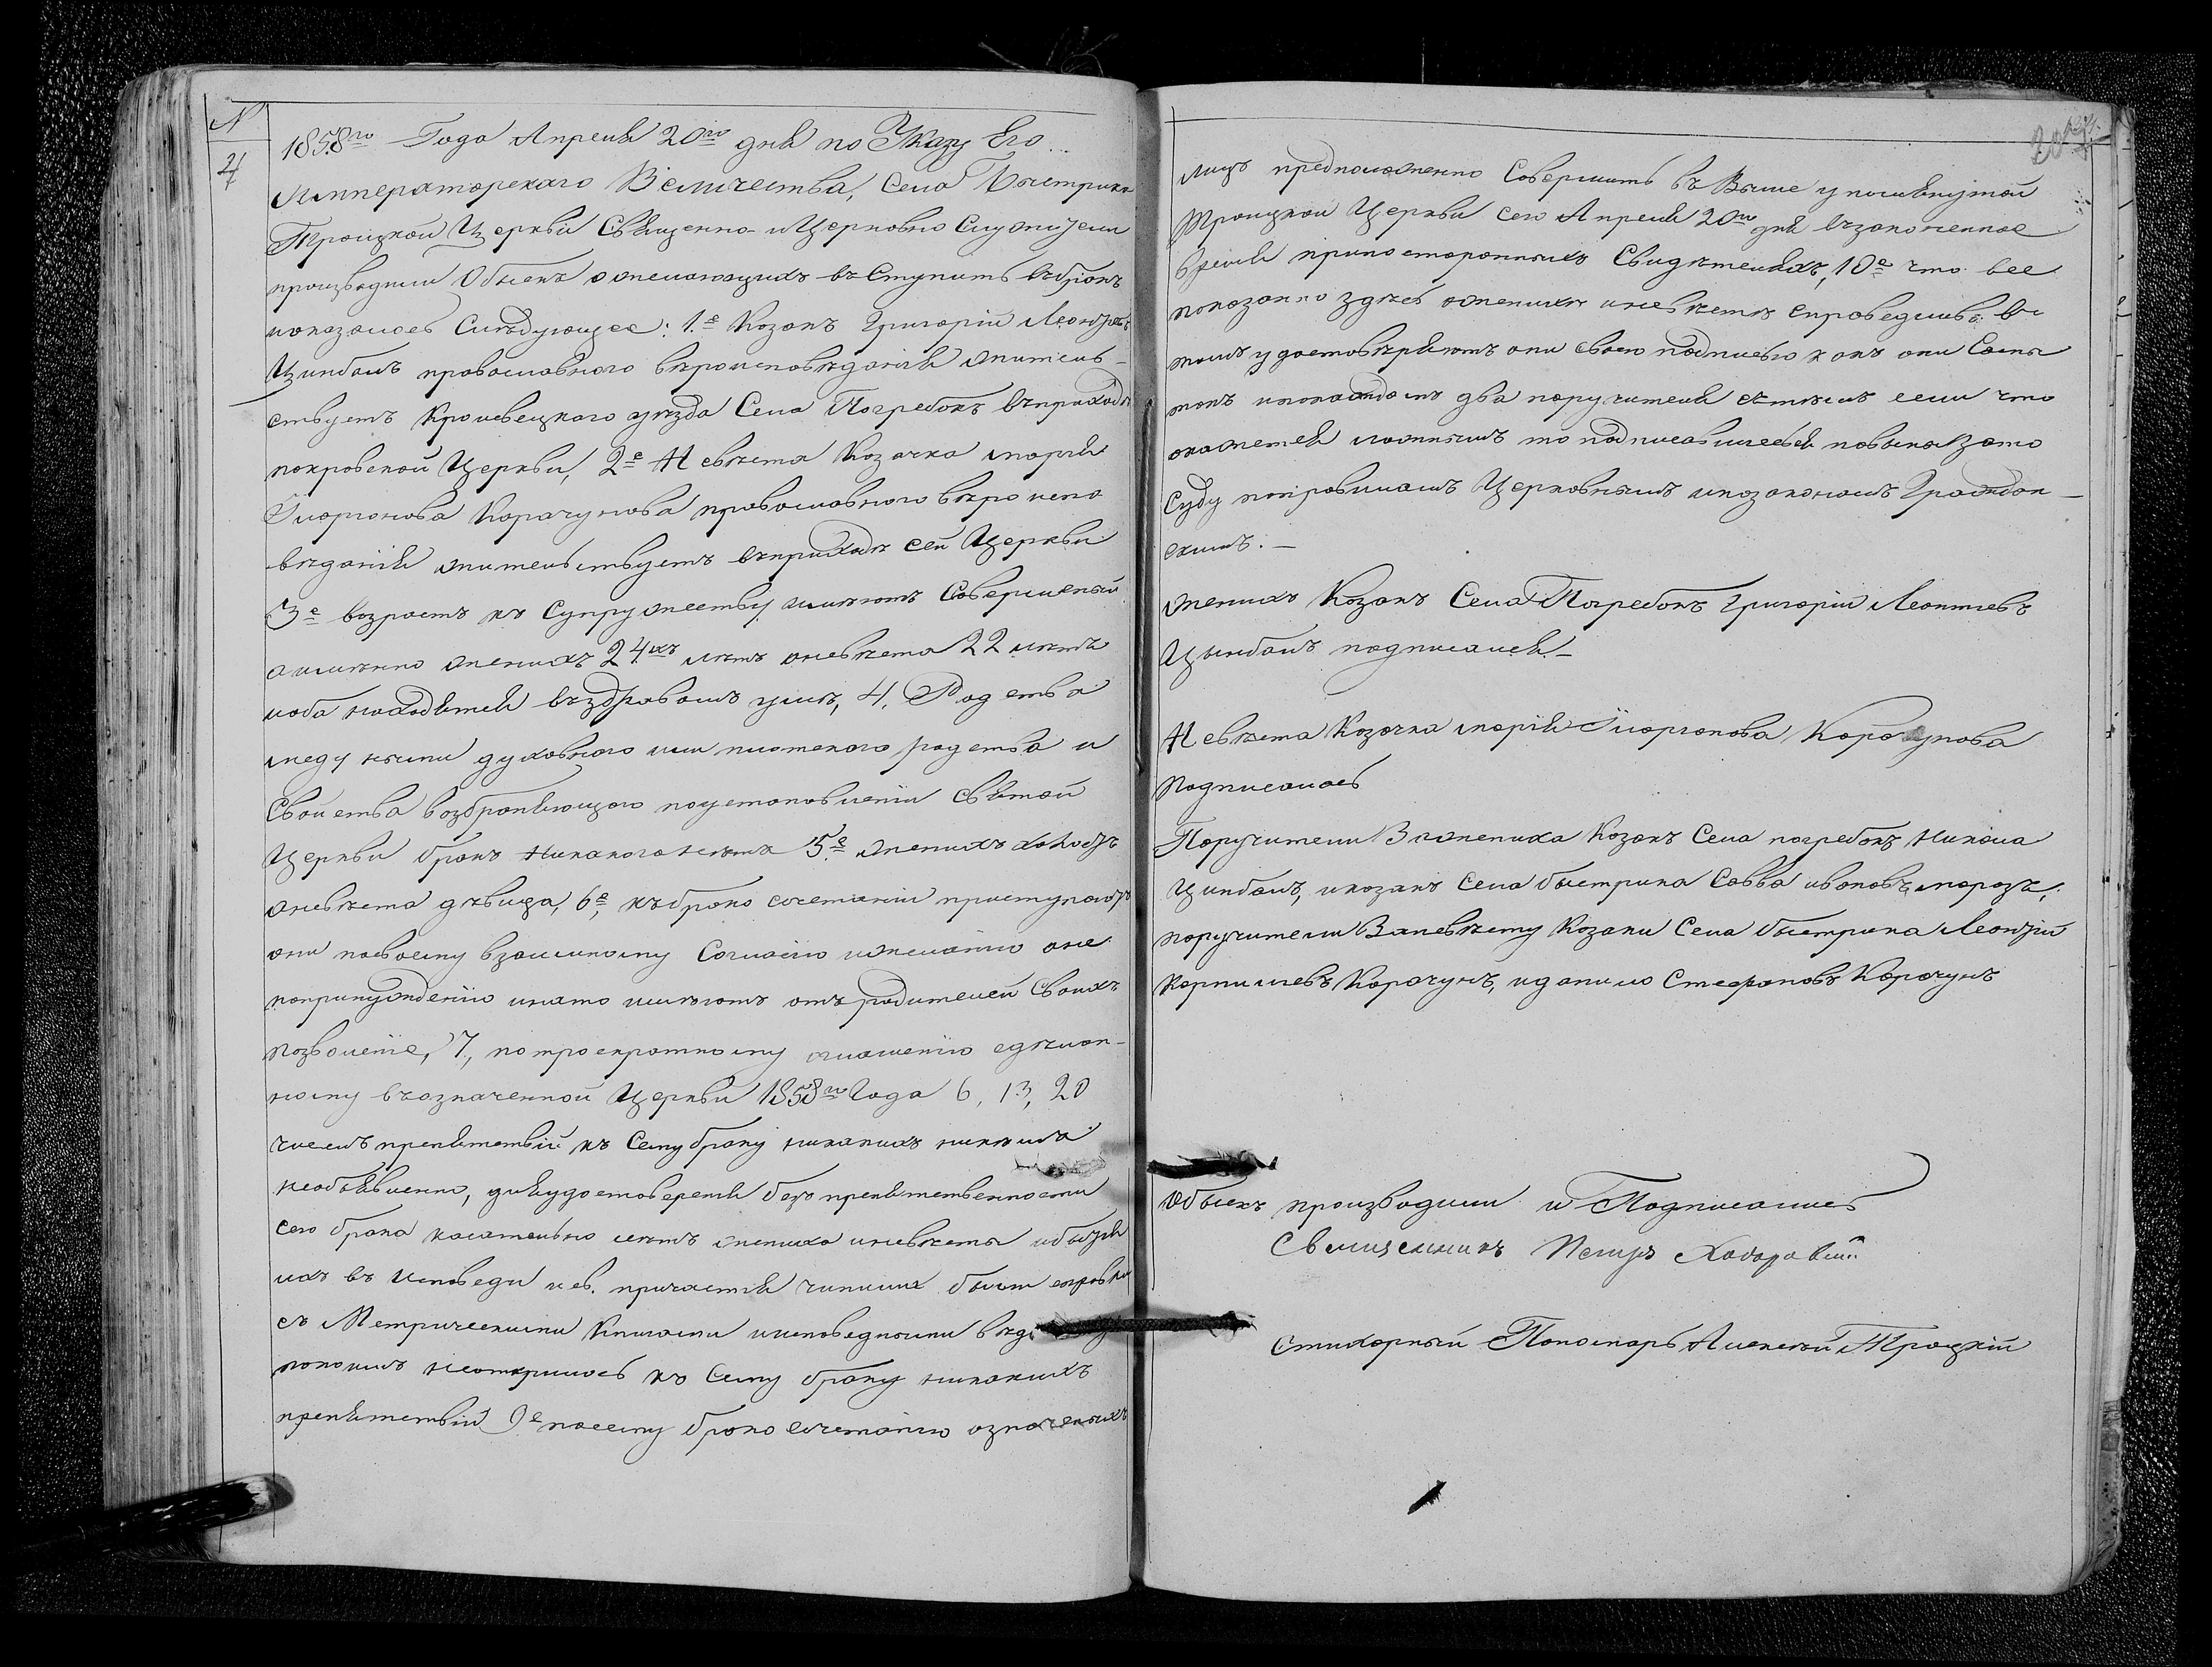 N
21
1858го Года Апреля 20го дня по Указу Его
Императорскаго Величества, Села Быстрика
Троицкой Церкви Священно- и Церковно Служители
производили Обыскъ о желающихъ въ Ступить въ бракъ
и оказалось Следующее: 1е Козакъ Григорій Леонтіевъ
Цимбалъ православнаго вѣроисповѣданія житель-
ствуетъ Кролевецкаго уѣзда Села Погребокъ въ приходѣ
покровской Церкви, 2е Невѣста Козачка марія
Иларіонова Карачунова православнаго вѣро испо
вѣданія жительствуетъ въ приходѣ сей Церкви
3е возрастъ къ Супружеству имѣютъ Совершеный
а имѣнно женихъ 24хъ лѣтъ а невѣста 22 лѣтъ
и оба находятся въ здравомъ умѣ, 4, Родства
между ними духовнаго или плотскаго родства и
Свойства возбраняющаго по установленіи Святой
Церкви бракъ никакого нѣтъ 5е женихъ холостъ
а невѣста дѣвица, 6е, къ брако сочетаніи приступаютъ
они по своему взаимному Согласію и желанію а не
по принужденію и на то имѣютъ отъ родителей Своихъ
позволеніе, 7, по троекратному оглашенію сдѣлан-
ному въ означенной Церкви 1858го Года 6, 13, 20
числъ препятствій къ Сему браку никакихъ никѣмъ
необъявленно, для удостоверетя безо препятственности
сего брака касательно летъ жениха и невѣсты и бытія
ихъ въ исповеди и св. причастія чинимы были справки
съ Метрическими Книгами и исповедными
по коимъ неоткрилось къ Сему браку никакихъ
препятствій 9е по сему брако сочетанію означеныхъ
лицъ предположенно Совершить въ Выше упомянутой
Троицкой Церкви сего Апреля 20го дня въ законенное
время при по сторонныхъ Свидѣтеляхъ, 10е что все
показанно здѣсь о женихѣ и невѣстѣ справедливо въ
томъ удостовѣряютъ они своею подписью какъ они Сами
такъ и по каждомъ два поручителя съ тѣмъ если что
окажется ложнымъ то подписавшіеся повины за то
Суду по правиламъ Церковнымъ и по законамъ Граждан-
скимъ.-
женихъ Козакъ Села Погребокъ Григорій Леонтіевъ
Цымбалъ подписался-
Невѣста Козачка марія Иларіонова Карачунова
Подписалась
Поручители В жениха Козакъ Села погребокъ Никола
Цимбалъ, и козакъ Села быстрика Савва ивановъ морозъ,
поручители В невѣсту Козаки Села быстрика Леонтій
Корниліевъ Карачунъ, и данило Стефановъ Карачунъ
Обыскъ производили и Подписались
Священникъ Петръ
Стихарный Пономарь Алексей Троцкій